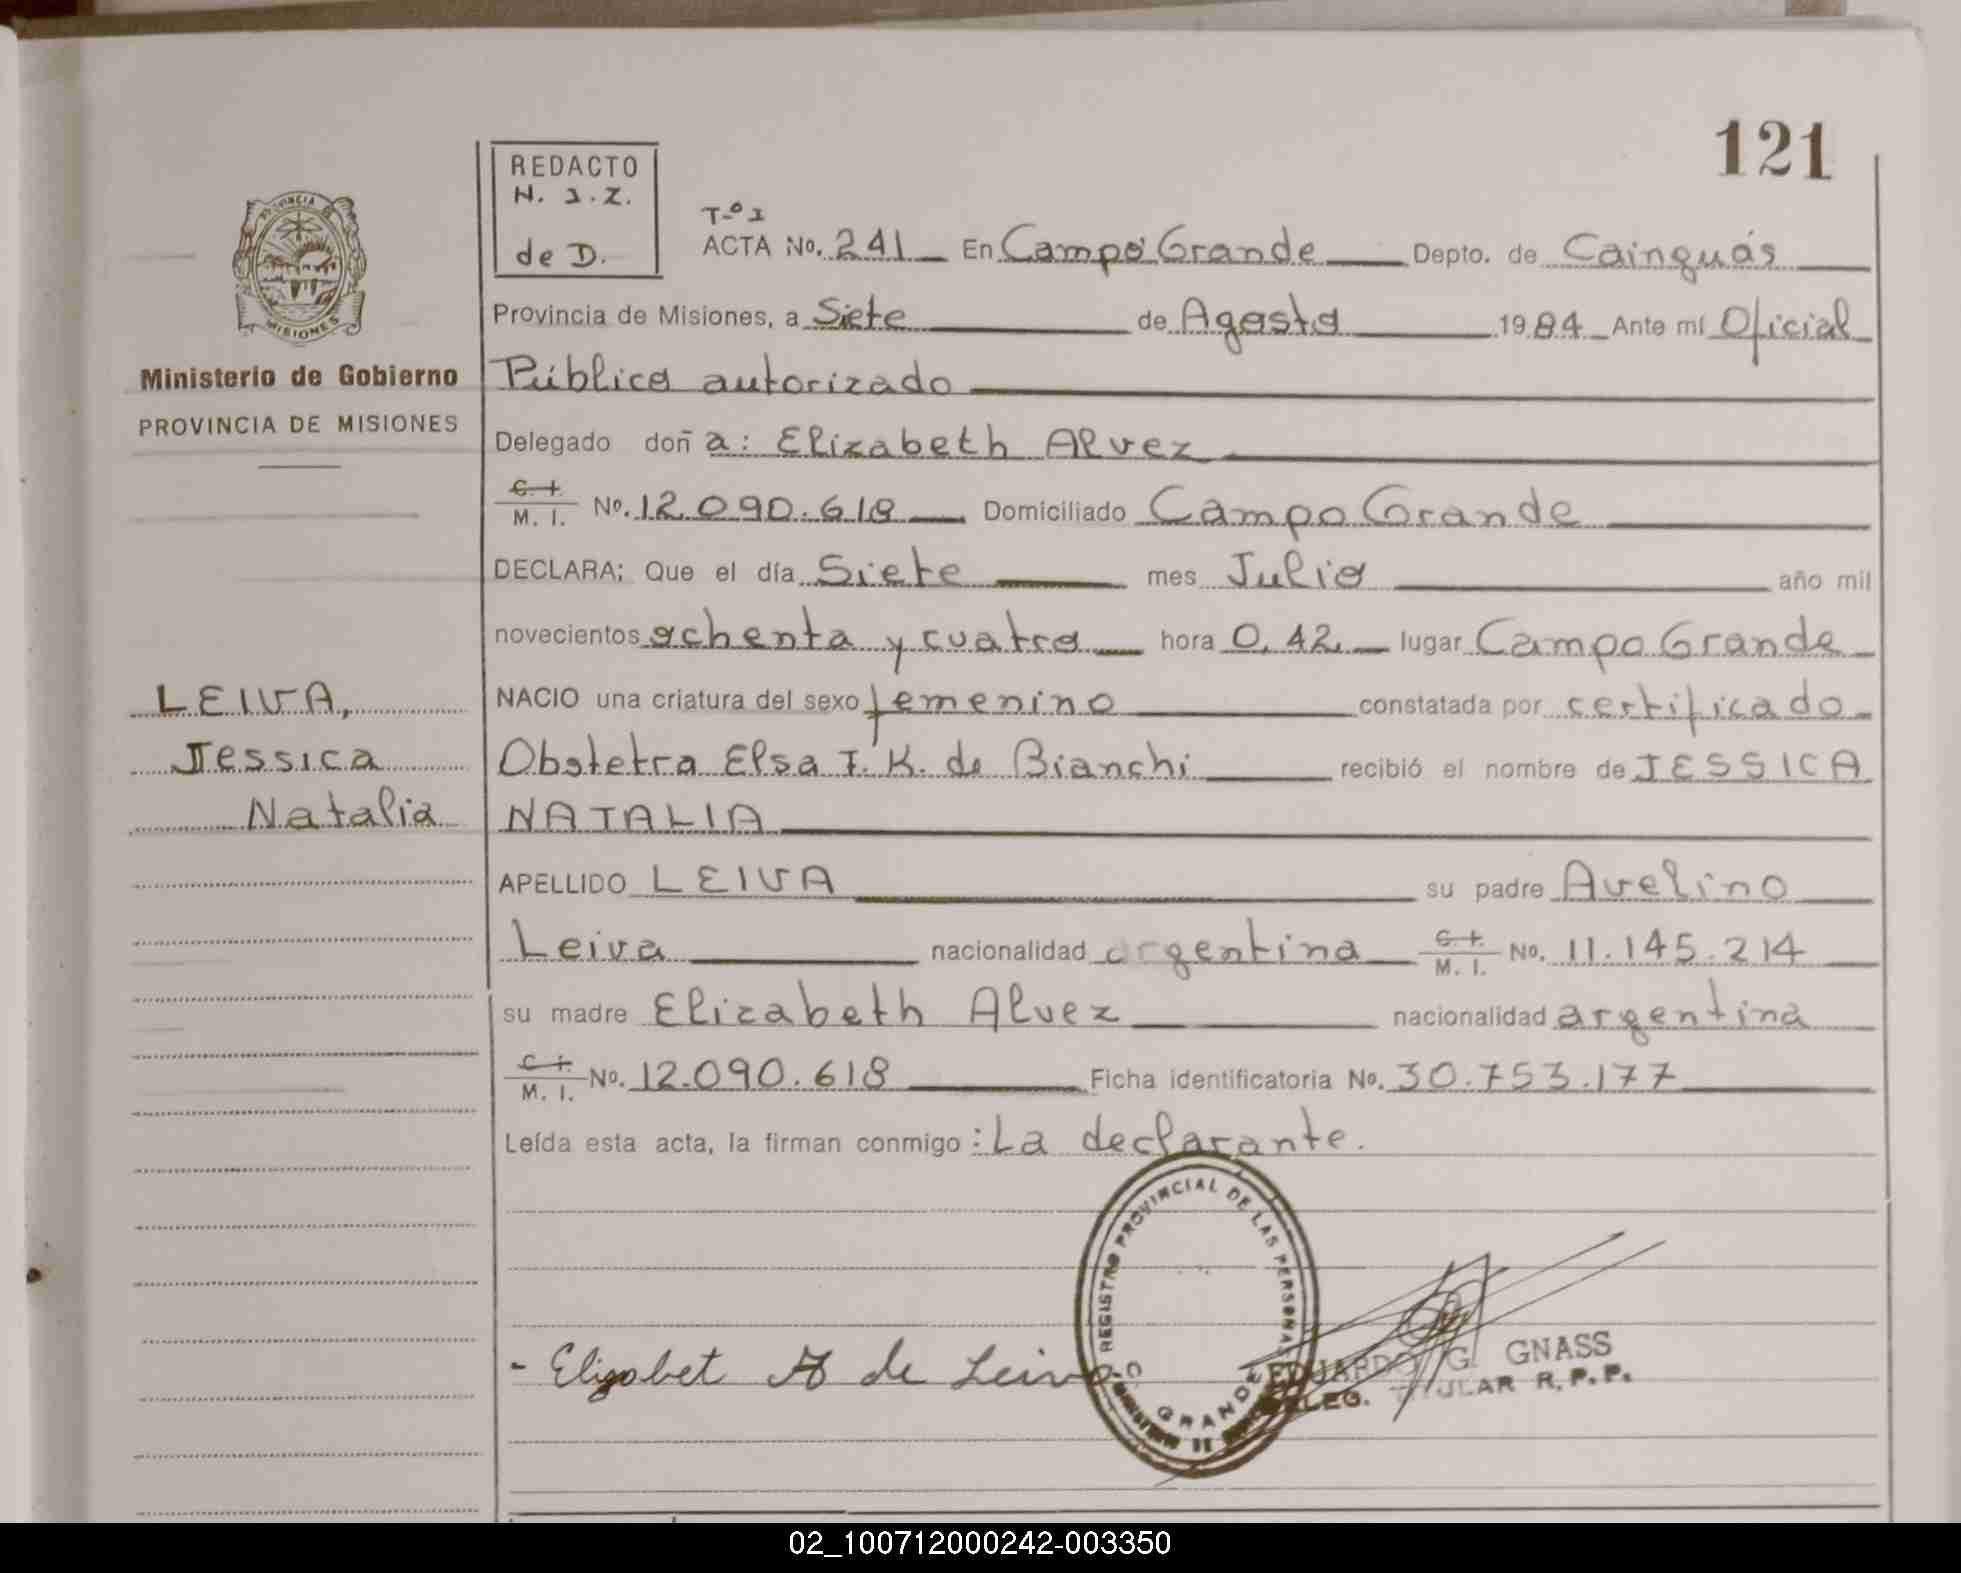 121
REDACTO
N. I. Z.
de D.
PROVINCIA DE
MISIONES
Ministerio de Gobierno
PROVINCIA DE MISIONES
T-º I
ACTA No. 241 En Campo Grande Depto. de Cainguás
Provincia de Misiones, a Siete de Agosto 1984 Ante mí Oficial
Público autorizado
Delegado doña: Elizabeth Alvez
C. I. M. I. No. 12.090.618 Domiciliado Campo Grande
DECLARA: Que el día Siete mes Julio año mil
novecientos ochenta y cuatro hora 0,42 lugar Campo Grande
LEIVA,
NACIO una criatura del sexo femenino constatada por certificado
Jessica
Obstetra Elsa I. K. de Bianchi recibió el nombre de JESSICA
Natalia
NATALIA
APELLIDO LEIVA su padre Avelino
Leiva nacionalidad argentina C. I. M. I. No. 11.145.214
su madre Elizabeth Alvez nacionalidad argentina
C. I. M. I. No. 12.090.618 Ficha identificatoria No. 30.753.177
Leída esta acta, la firman conmigo: La declarante.
REGISTRO PROVINCIAL DE LAS PERSONAS
GRANDE
- Elizabet A de Leiva
EDUARDO G. GNASS
DELEG. TITULAR R.P.P.
02_100712000242-003350